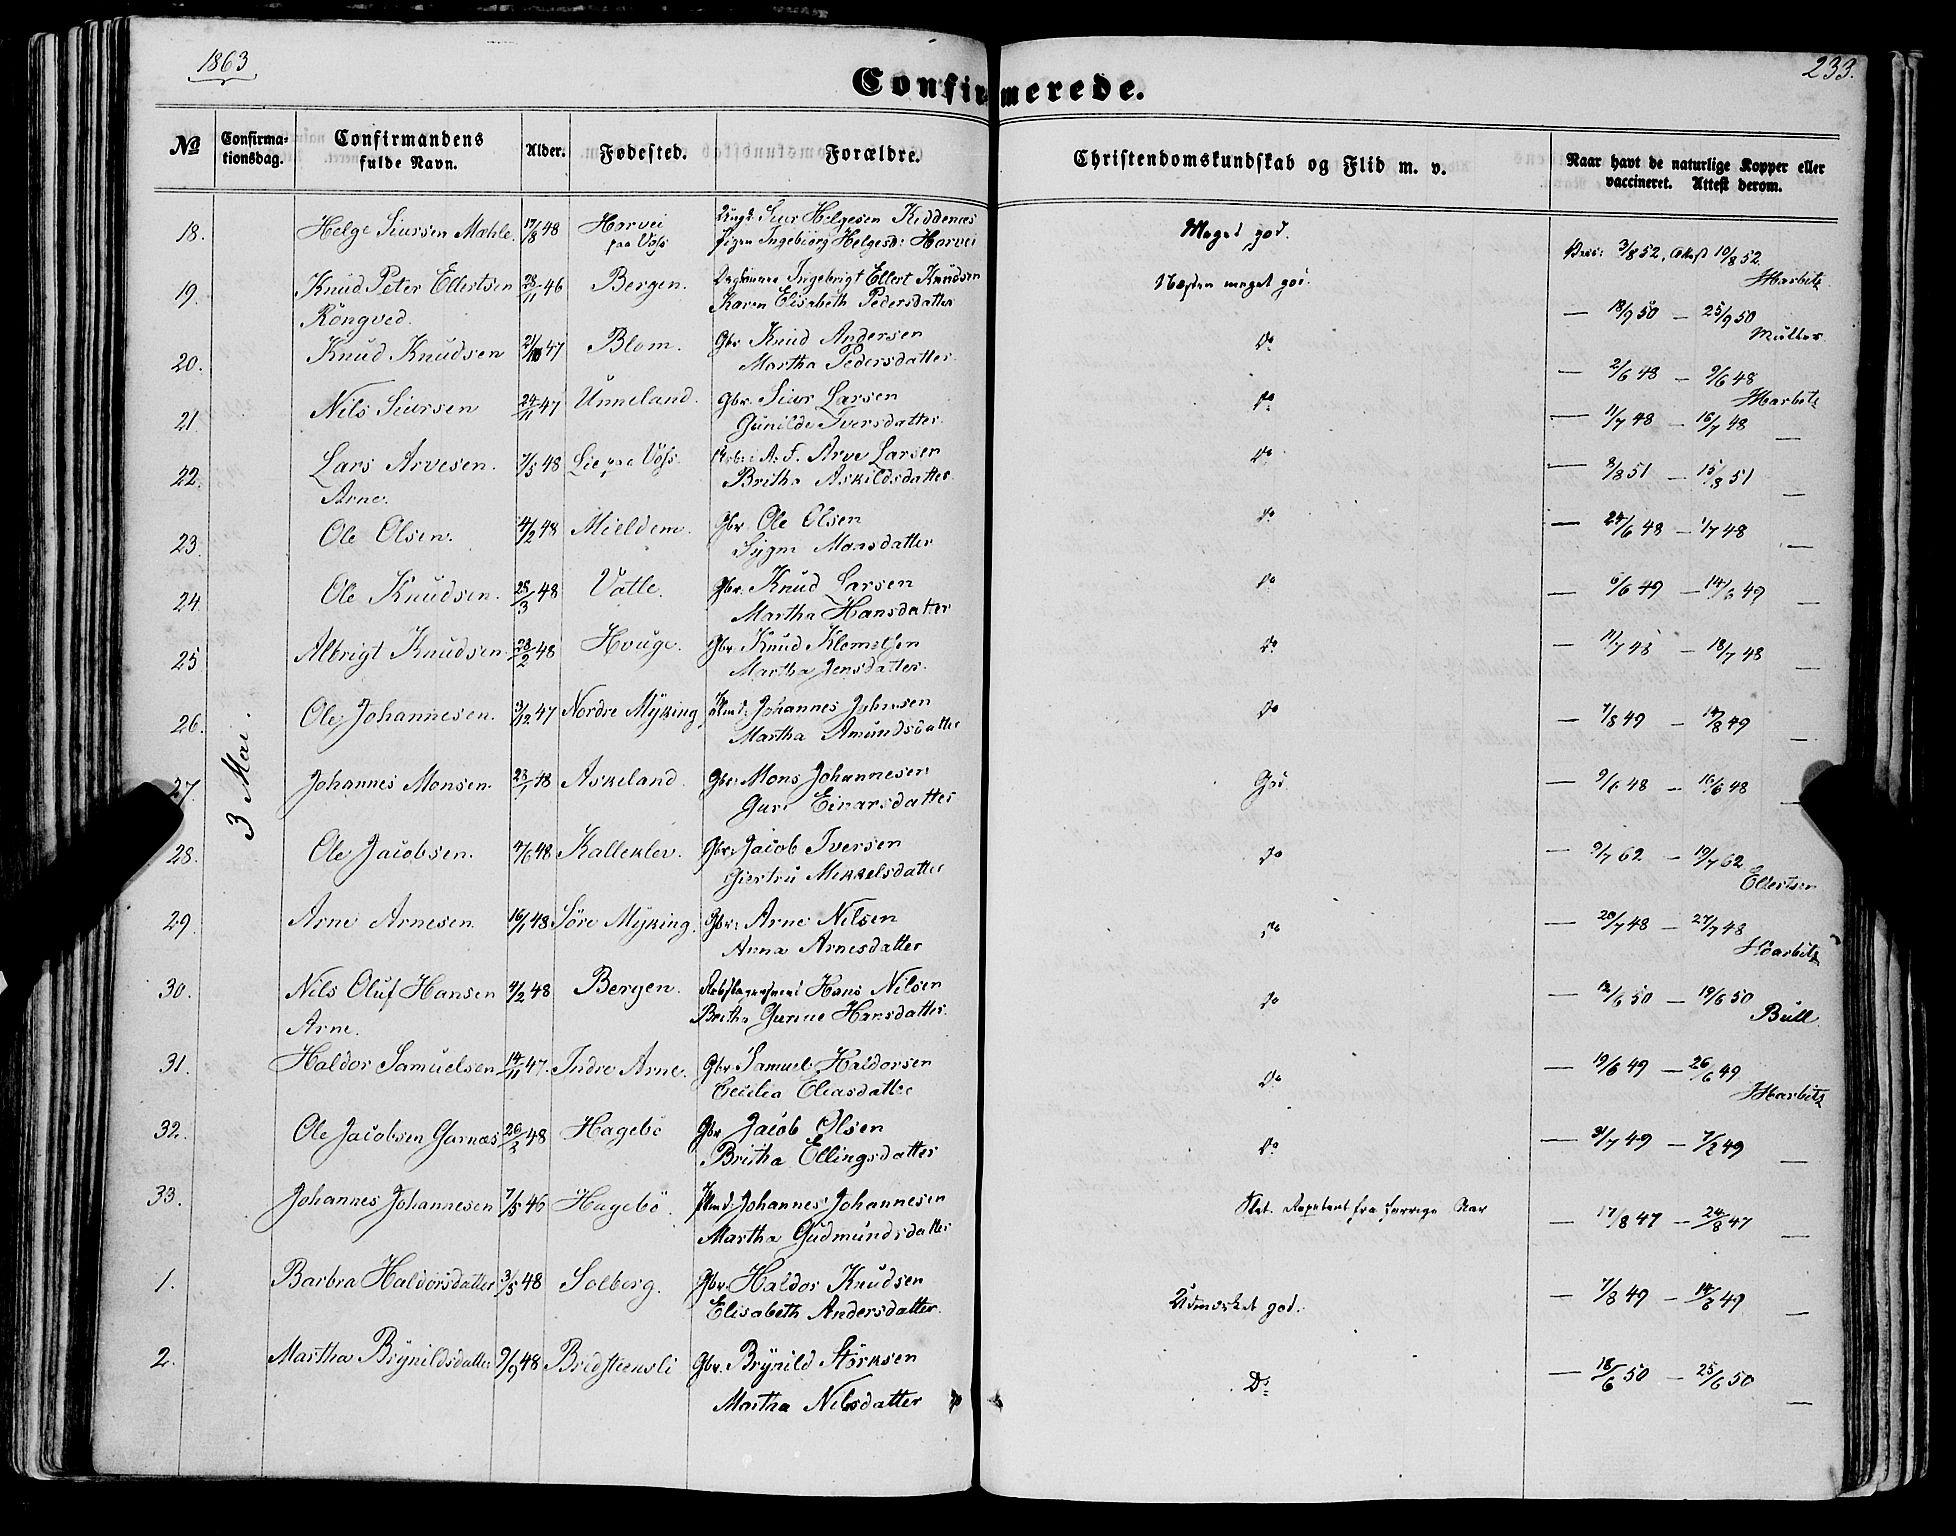 1863
233.
Confirmerede.
No
Confirmationsdag.
Confirmandens fulde Navn.
Alder.
Fødested.
Forældre.
Christendomskundskab og Flid m. v.
Naar havt de naturlige Kopper eller vaccineret. Attest derom.
3 Mai.
18. Helge Siursen Mæhle. 17/8 48 Horvei paa Voss Siur Helgesen Kiddenæs Meget god. 3/8 52, Attest 10/8 52
Pigen Ingebiørg Helgesd: Horvei Harbitz
19. Knud Peter Ellertsen 28/11 46 Bergen. Ingebrigt Ellert Knudsen Næsten meget god. — 18/9 50 — 25/9 50
Röngved. Karen Elisabeth Pedersdatter Müller
20. Knud Knudsen 47 Blom. Gbr Knud Andersen Do — 2/6 48 — 9/6 48
Martha Pedersdatter Harbitz
21. Nils Siursen 24/11 47 Unneland. Gbr. Siur Larsen Do — 11/7 48 — 16/7 48
Gunilde Iversdatter —
22. Lars Arvesen. 7/5 48 Lie paa Voss. Arve Larsen Do — 8/8 51 — 15/8 51
Arne. Britha Askildsdatter —
23. Ole Olsen. 4/2 48 Mieldem. Gbr Ole Olsen Do — 24/6 48 — 1/7 48
Sygni Monsdatter —
24. Ole Knudsen. 28/3 48 Vatle. Gbr. Knud Larsen Do — 6/6 49 — 14/6 49
Martha Hansdatter —
25 Albrigt Knudsen 23/2 48 Houge. Gbr. Knud Klemetsen Do — 11/7 48 — 18/7 48
Martha Jensdatter. —
26. Ole Johannesen. 3/12 47 Nordre Myking Johannes Johnsen Do — 7/8 49 — 14/8 49
Martha Amundsdatter —
27. Johannes Monsen. 23/1 48 Askeland. Gbr. Mons Johannesen God. — 9/6 48 — 16/6 48
Guri Einarsdatter —
28. Ole Jacobsen. 4/6 48 Kalleklev. Gbr. Jacob Iversen Do — 9/7 62 — 19/7 62
Giertru Mikkelsdatter Ellertsen
29. Arne Arnesen. 16/1 48 Søre Myking. Gbr. Arne Nilsen Do — 20/7 48 — 27/7 48
Anna Arnesdatter Harbitz
30. Nils Oluf Hansen 4/2 48 Bergen. Hans Nilsen Do — 12/6 50 — 19/6 50
Arne. Britha Hansdatter. Bull
31. Haldor Samuelsen 14/11 47. Indre Arne. Gbr. Samuel Haldorsen Do — 19/6 49 — 26/6 49
Cecilia Eliasdatter Harbitz
32. Ole Jacobsen Garnæs 26/2 48 Hagebö Gbr Jacob Olsen Do — 31/7 49 — 7/8 49
Britha Ellingsdatter —
33. Johannes Johannesen 7/5 46 Hagebö. Johannes Johannesen fra forrige Aar — 17/8 47 — 24/8 47
Martha Gudmundsdatter —
1. Barbra Haldorsdatter 3/5 48 Solberg. Gbr. Haldor Knudsen Udmærket god. — 7/8 49 — 14/8 49
Elisabeth Andersdatter. —
2. Martha Brynildsdatter 9/9 48 Bredsteensli Gbr. Brynild Störksen Do — 18/6 50 — 25/6 50
Martha Nilsdatter —